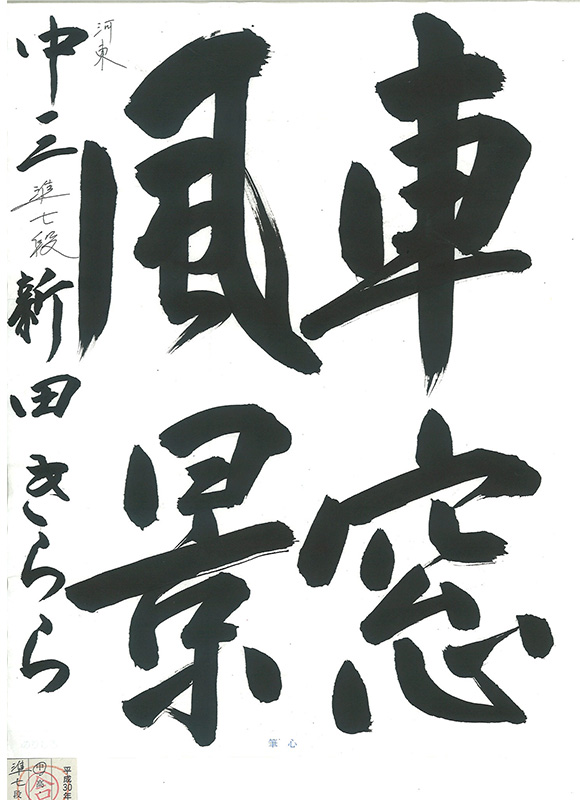 車窓
風景
河東
中三 準七段 新田きらら
心筆
平成30年
準七段